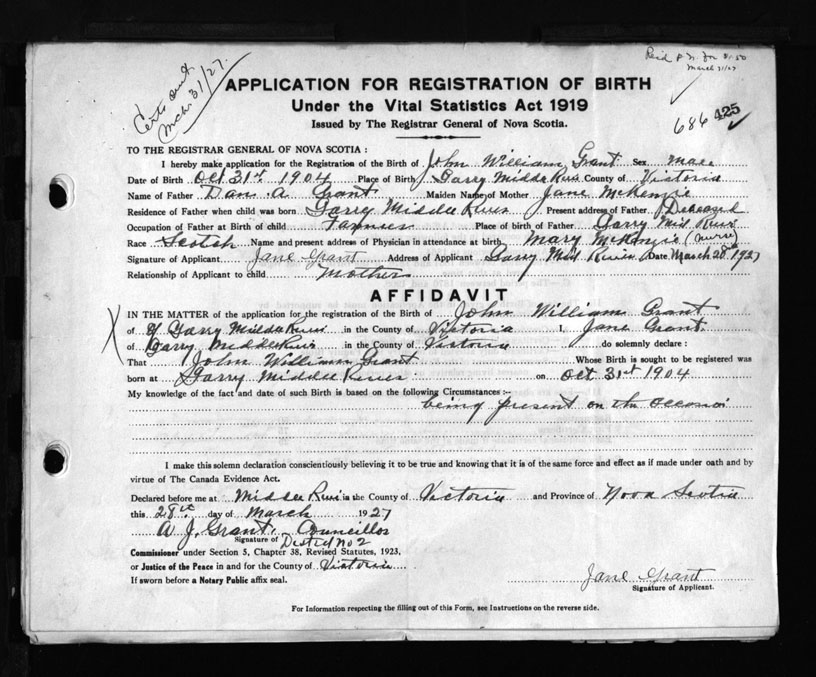 Certs sent
Mch. 31/27.
March 31/27
APPLICATION FOR REGISTRATION OF BIRTH
Under the Vital Statistics Act 1919
Issued by The Registrar General of Nova Scotia.
686 425
TO THE REGISTRAR GENERAL OF NOVA SCOTIA :
I hereby make application for the Registration of the Birth of John William Grant Sex Male
Date of Birth Oct 31st 1904 Place of Birth Garry Middle River County of Victoria
Name of Father Dan. A. Grant Maiden Name of Mother Jane McKenzie
Residence of Father when child was born Garry Middle River Present address of Father Deceased
Occupation of Father at Birth of child Farmer Place of birth of Father Garry Mid River
Race Scotch Name and present address of Physician in attendance at birth Mary McKenzie (nurse)
Signature of Applicant Jane Grant Address of Applicant Garry Mid River Date March 28th 1927
Relationship of Applicant to child Mother
AFFIDAVIT
IN THE MATTER of the application for the registration of the Birth of John William Grant
of Garry Middle River in the County of Victoria I, Jane Grant
of Garry Middle River in the County of Victoria do solemnly declare :
That John William Grant Whose Birth is sought to be registered was
born at Garry Middle River on Oct 31st 1904
My knowledge of the fact and date of such Birth is based on the following Circumstances :—
being present on the occasion
I make this solemn declaration conscientiously believing it to be true and knowing that it is of the same force and effect as if made under oath and by
virtue of The Canada Evidence Act.
Declared before me at Middle River in the County of Victoria and Province of Nova Scotia
this 28th day of March 1927
A J. Grant. Councillor
Signature of
District No 2
Commissioner under Section 5, Chapter 38, Revised Statutes, 1923,
or Justice of the Peace in and for the County of Victoria
If sworn before a Notary Public affix seal.
Jane Grant
Signature of Applicant.
For Information respecting the filling out of this Form, see Instructions on the reverse side.